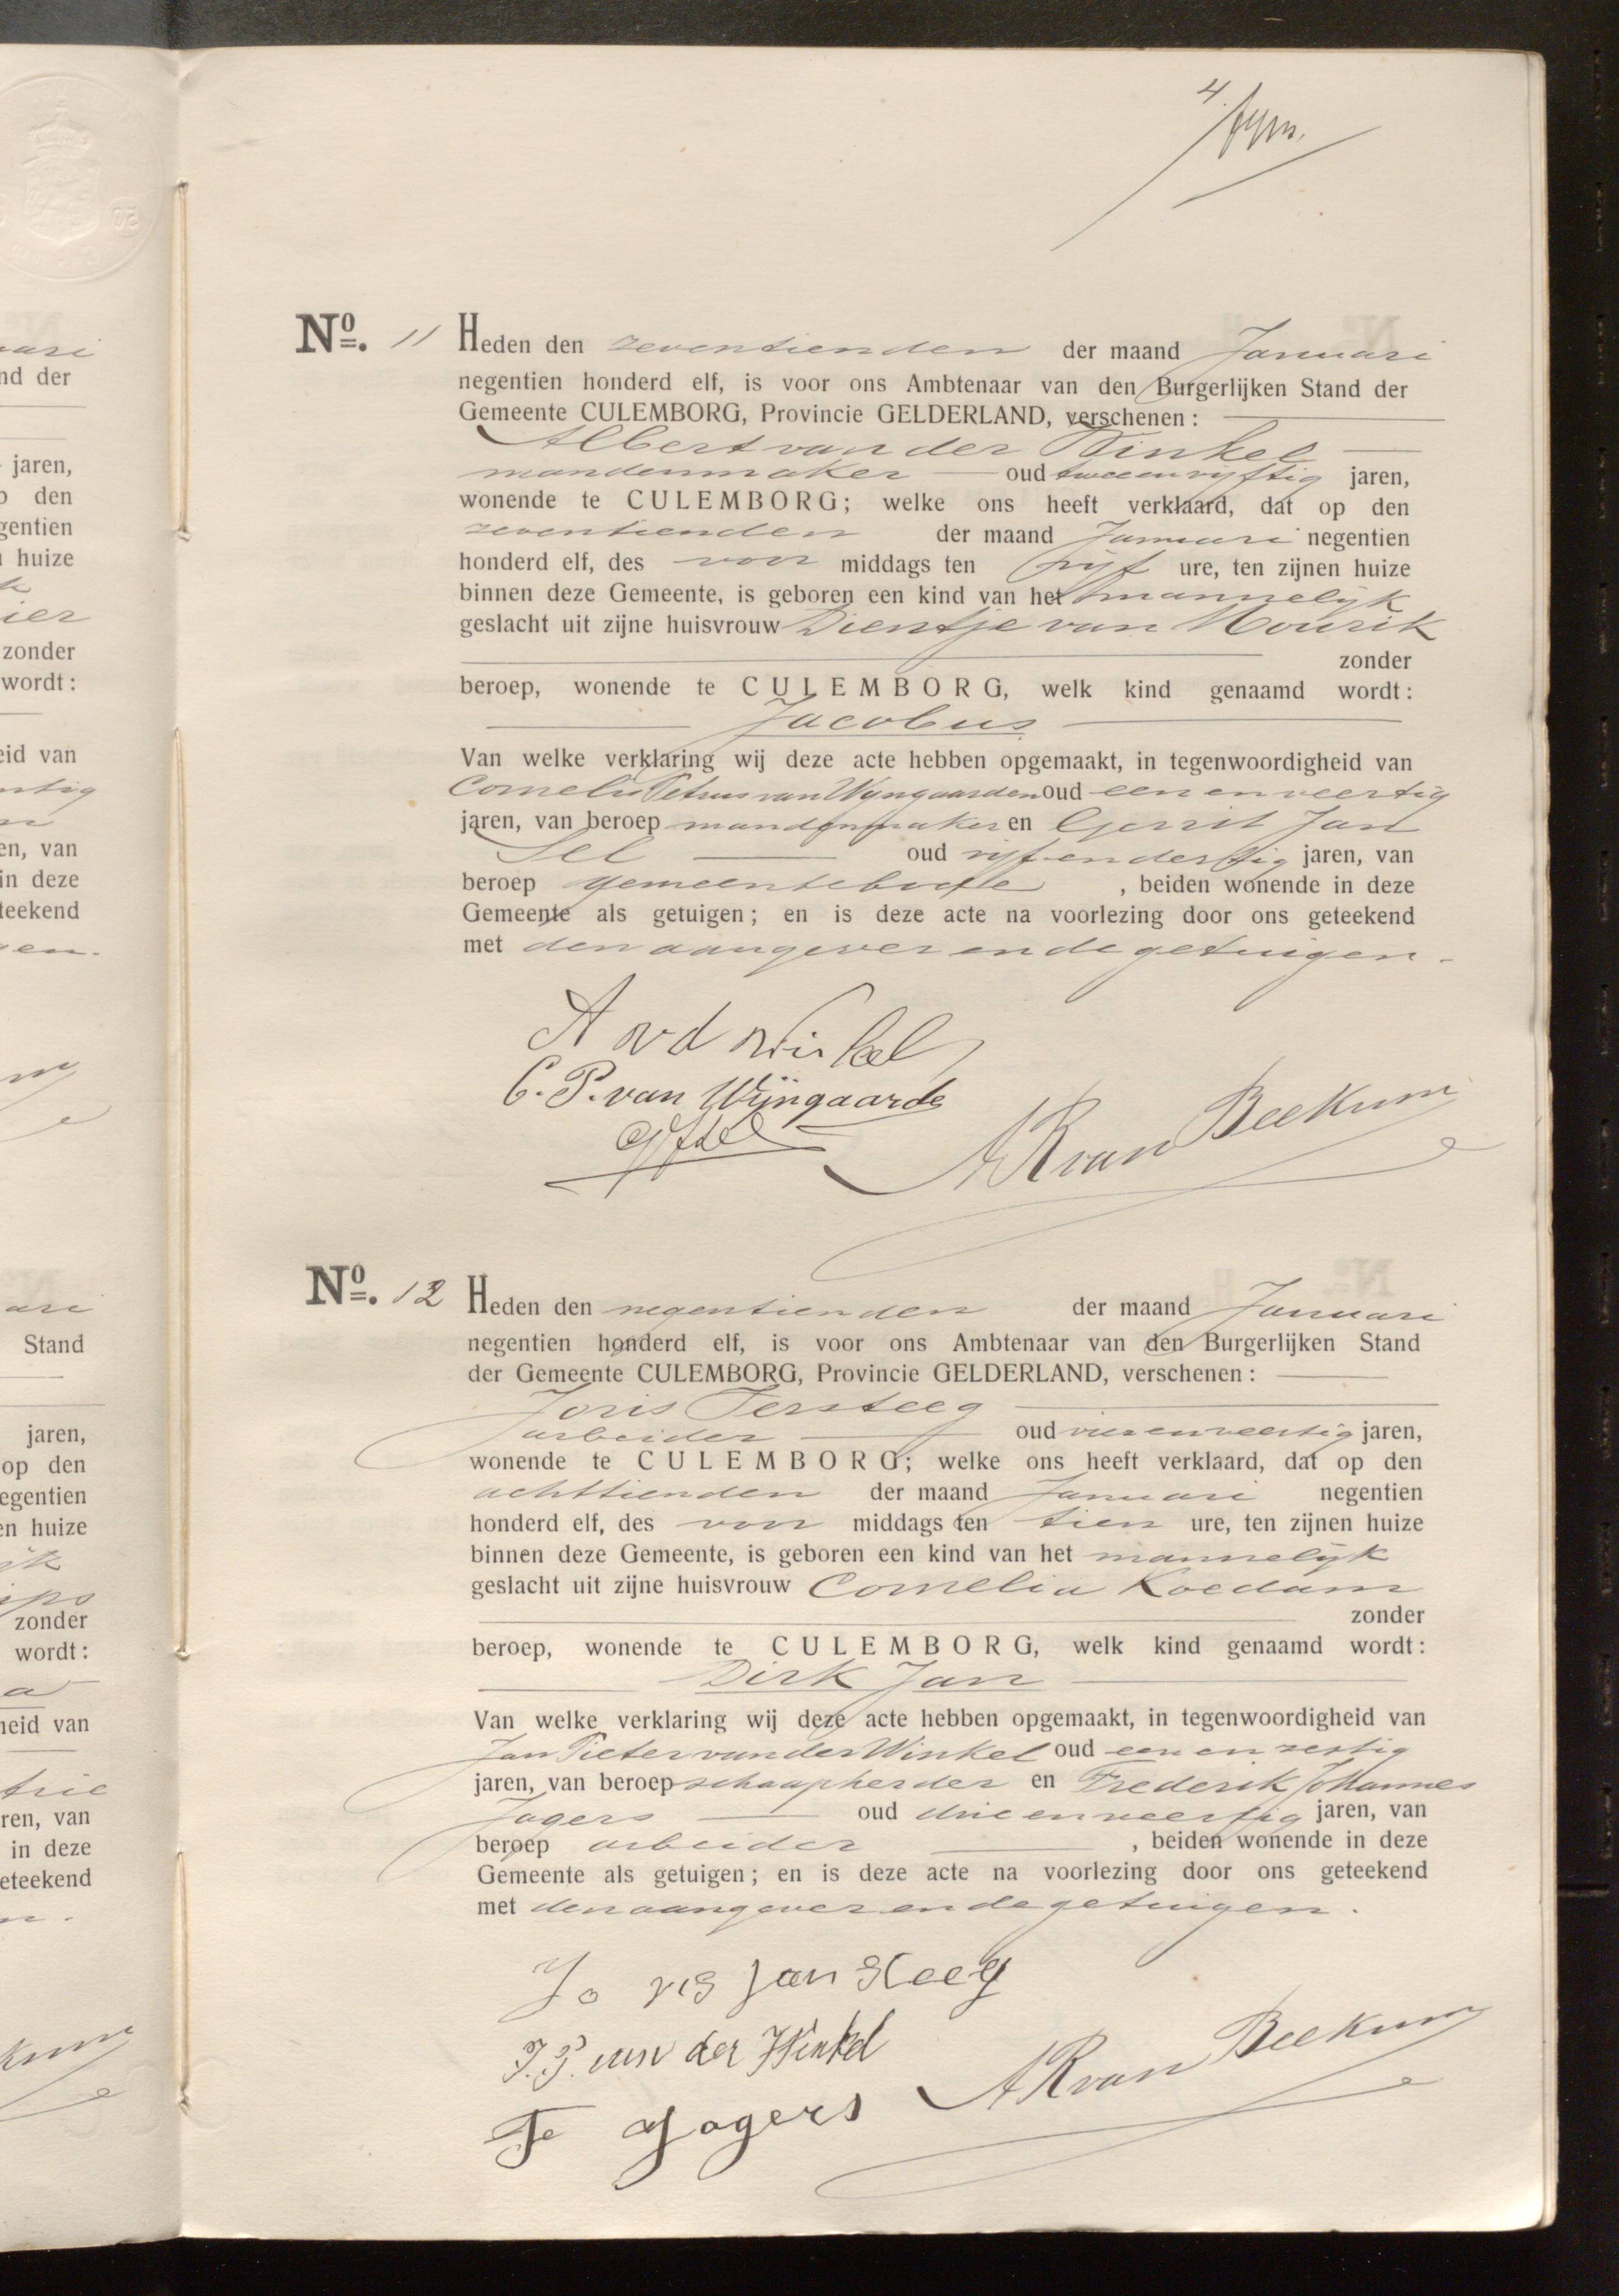 4
No. 11 Heden den zeventienden der maand Januari
negentien honderd elf, is voor ons Ambtenaar van den Burgerlijken Stand der
Gemeente CULEMBORG, Provincie GELDERLAND, verschenen :
Albert van der Winkel
mandenmaker oud tweeenvijftig jaren,
wonende te CULEMBORG; welke ons heeft verklaard, dat op den
zeventienden der maand Januari negentien
honderd elf, des voor middags ten vijf ure, ten zijnen huize
binnen deze Gemeente, is geboren een kind van het mannelijk
geslacht uit zijne huisvrouw Dientje van Mourik
zonder
beroep, wonende te CULEMBORG, welk kind genaamd wordt :
Jacobus
Van welke verklaring wij deze acte hebben opgemaakt, in tegenwoordigheid van
Cornelis Petrus van Wijngaarden oud een en veertig
jaren, van beroep mandenmaker en Gerrit Jan
Sel oud vijf en dertig jaren, van
beroep gemeentebode , beiden wonende in deze
Gemeente als getuigen ; en is deze acte na voorlezing door ons geteekend
met den aangever en de getuigen.
A v d Winkel
C. P. van Wijngaarde
GJ Sel
AR van Beekum
No. 12 Heden den negentienden der maand Januari
negentien honderd elf, is voor ons Ambtenaar van den Burgerlijken Stand
der Gemeente CULEMBORG, Provincie GELDERLAND, verschenen :
Joris Tersteeg
arbeider oud vier en veertig jaren,
wonende te CULEMBORG; welke ons heeft verklaard, dat op den
achttienden der maand Januari negentien
honderd elf, des voor middags ten tien ure, ten zijnen huize
binnen deze Gemeente, is geboren een kind van het mannelijk
geslacht uit zijne huisvrouw Cornelia Koedam
zonder
beroep, wonende te CULEMBORG, welk kind genaamd wordt :
Dirk Jan
Van welke verklaring wij deze acte hebben opgemaakt, in tegenwoordigheid van
Jan Pieter van der Winkel oud een en zestig
jaren, van beroep schaapherder en Frederik Johannes
Jagers oud drie en veertig jaren, van
beroep arbeider , beiden wonende in deze
Gemeente als getuigen ; en is deze acte na voorlezing door ons geteekend
met den aangever en de getuigen.
J. P. van der Winkel
Jagers
AR van Beekum